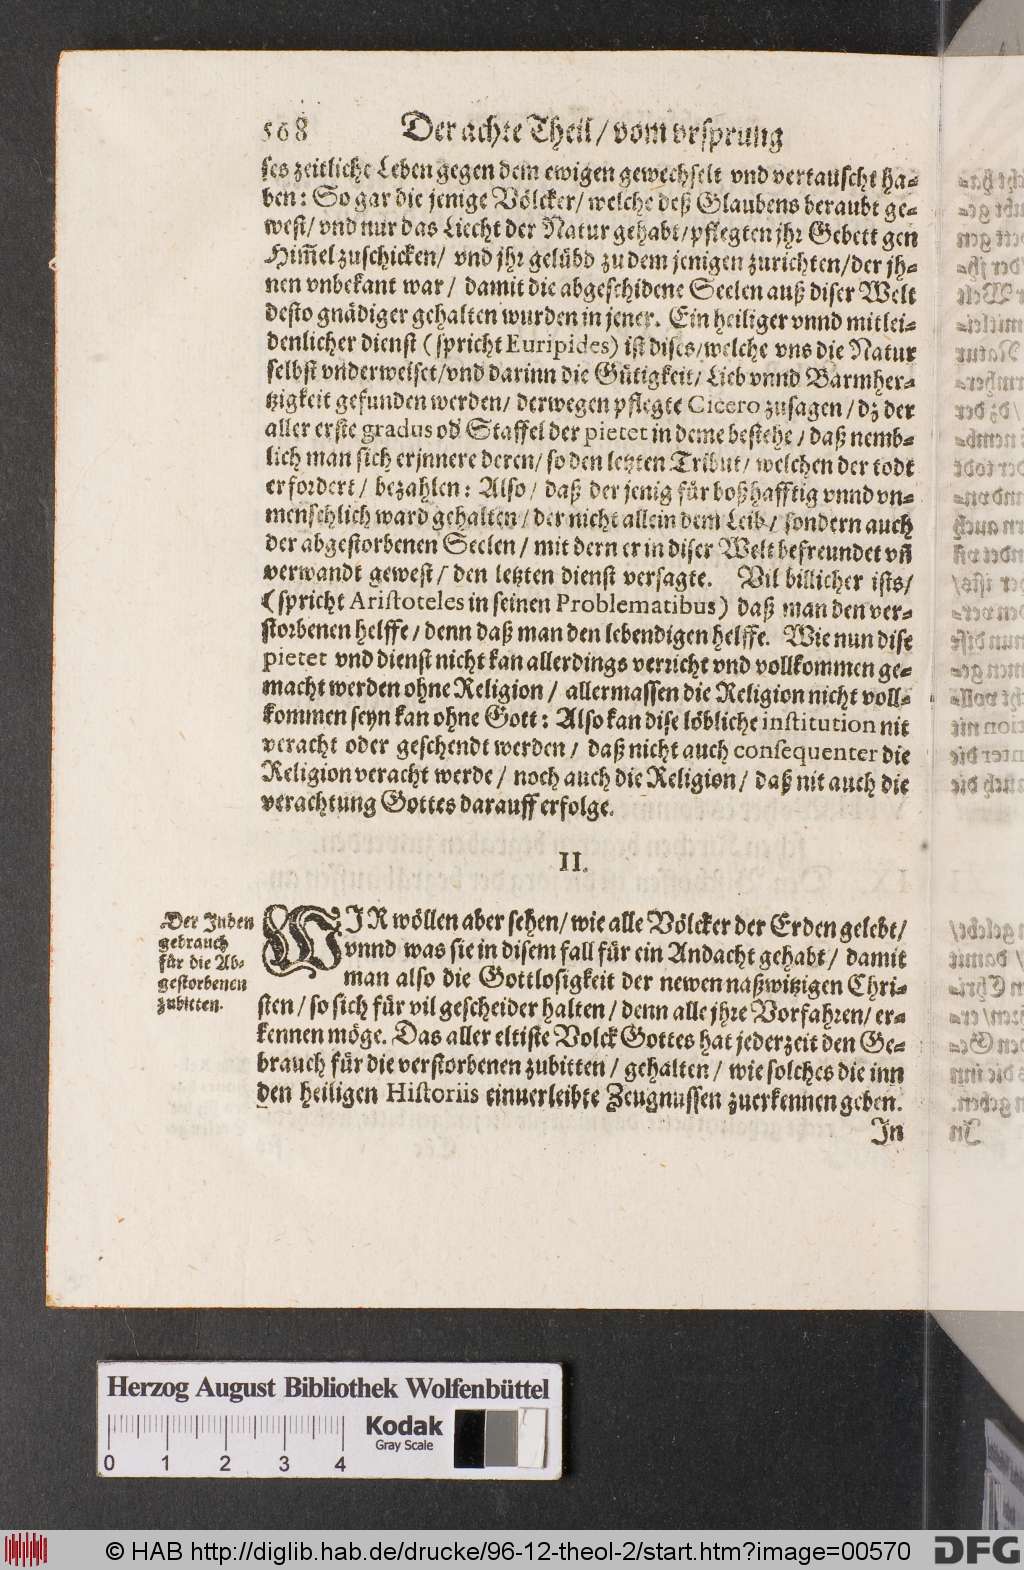 568 Der achte Theil / vom vrsprung
ses zeitliche Leben gegen dem ewigen gewechselt vnd vertauscht ha-
ben: So gar die jenige Völcker / welche deß Glaubens beraubt ge-
west / vnd nur das Liecht der Natur gehabt / pflegten jhr Gebett gen
Him̃el zuschicken / vnd jhr gelübd zu dem jenigen zurichten / der jh-
nen vnbekant war / damit die abgeschidene Seelen auß diser Welt
desto gnädiger gehalten wurden in jener. Ein heiliger vnnd mitlei-
denlicher dienst (spricht Euripides) ist dises / welche vns die Natur
selbst vnderweiset / vnd darinn die Gütigkeit / Lieb vnnd Barmher-
tzigkeit gefunden werden / derwegen pflegte Cicero zusagen / dz der
aller erste gradus od' Staffel der pietet in deme bestehe / daß nemb-
lich man sich erjnnere deren / so den letzten Tribut / welchen der todt
erfordert / bezahlen: Also / daß der jenig für boßhafftig vnnd vn-
menschlich ward gehalten / der nicht allein dem Leib / sondern auch
der abgestorbenen Seelen / mit dern er in diser Welt befreundet vñ
verwandt gewest / den letzten dienst versagte. Vil billicher ists /
(spricht Aristoteles in seinen Problematibus) daß man den ver-
storbenen helffe / denn daß man den lebendigen helffe. Wie nun dise
pietet vnd dienst nicht kan allerdings verricht vnd vollkommen ge-
macht werden ohne Religion / allermassen die Religion nicht voll-
kommen seyn kan ohne Gott: Also kan dise löbliche institution nit
veracht oder geschendt werden / daß nicht auch consequenter die
Religion veracht werde / noch auch die Religion / daß nit auch die
verachtung Gottes darauff erfolge.
II.
Der Juden
gebrauch
für die Ab-
gestorbenen
zubitten.
WJR wöllen aber sehen / wie alle Völcker der Erden gelebt /
vnnd was sie in disem fall für ein Andacht gehabt / damit
man also die Gottlosigkeit der newen naßwitzigen Chri-
sten / so sich für vil gescheider halten / denn alle jhre Vorfahren / er-
kennen möge. Das aller eltiste Volck Gottes hat jederzeit den Ge-
brauch für die verstorbenen zubitten / gehalten / wie solches die inn
den heiligen Historiis einuerleibte Zeugnussen zuerkennen geben.
Jn
Herzog August Bibliothek Wolfenbüttel
Kodak
Gray Scale
0 1 2 3 4
© HAB http://diglib.hab.de/drucke/96-12-theol-2/start.htm?image=00570
DFG